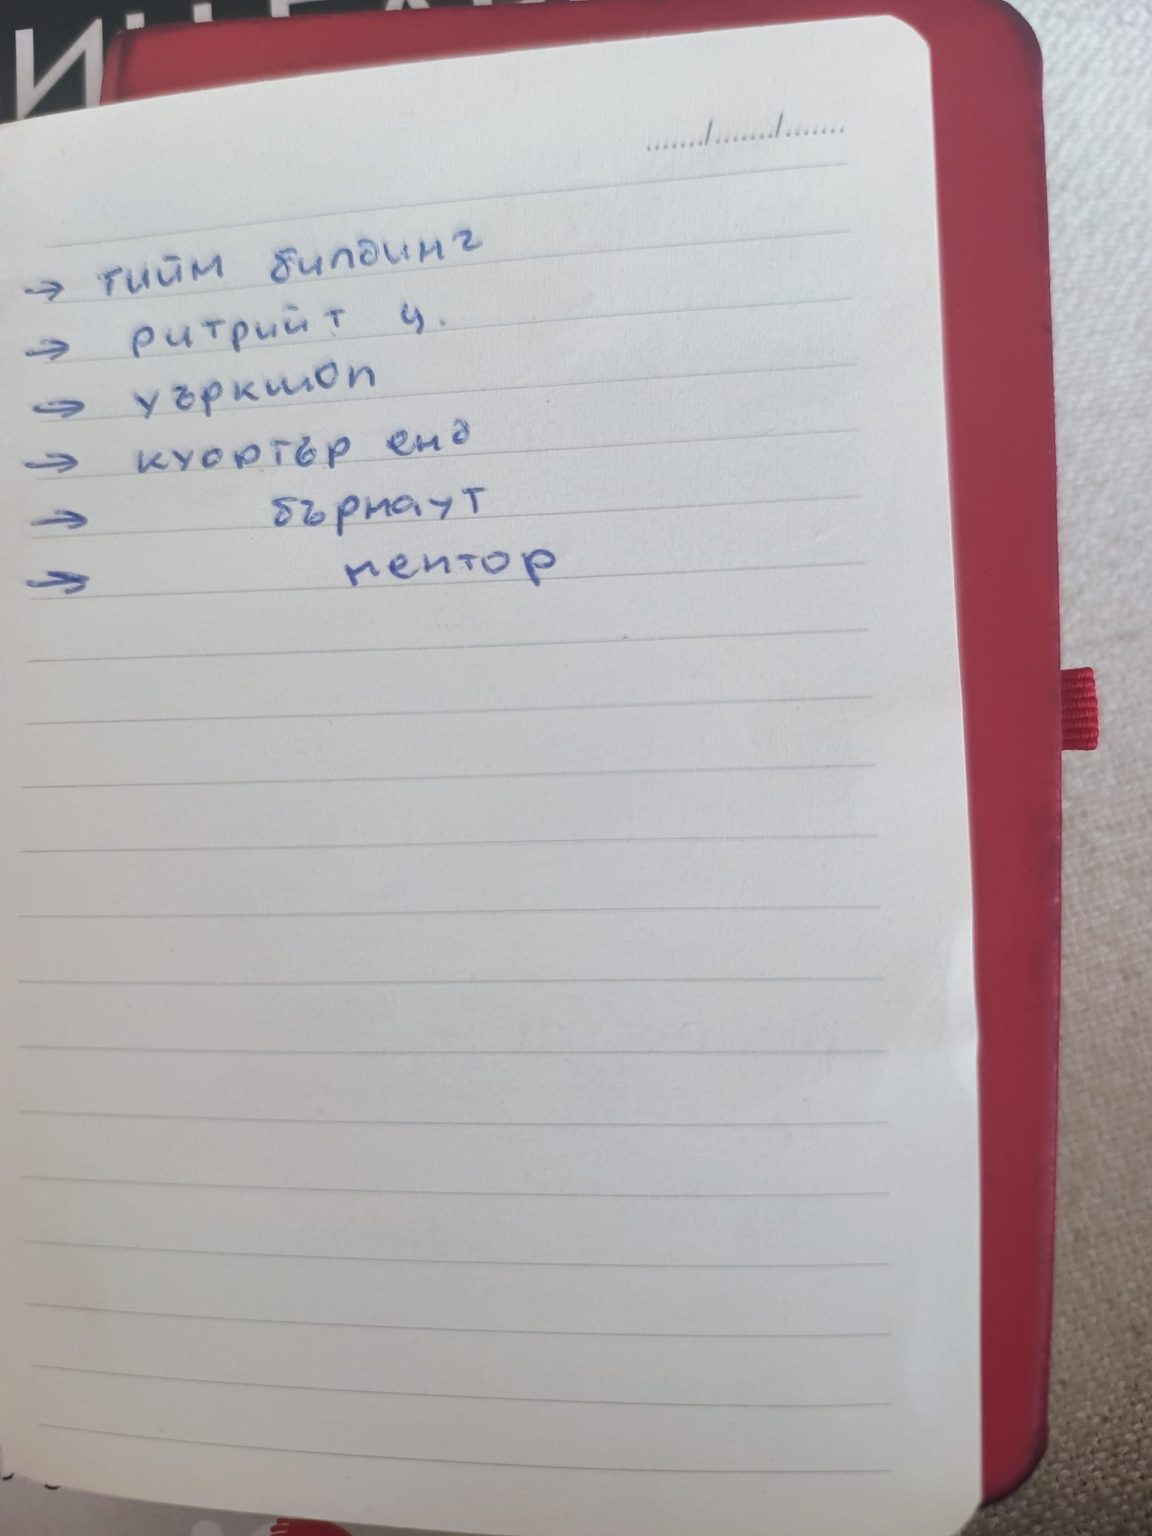 → тийм билдинг
→ ритрийт ц.
→ уъркшоп
→ куортър енд
→ бърнаут
→ ментор